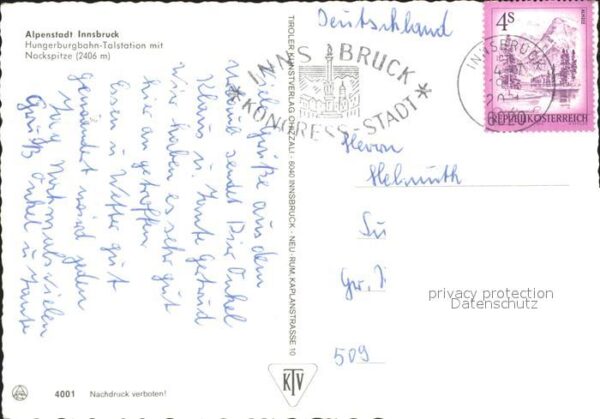 Alpenstadt Innsbruck
Hungerburgbahn-Talstation mit
Nockspitze (2406 m)
Viele Grüße aus dem
sendet Dir Onkel
Klaus u. Tante Gertrud
Wir haben es sehr gut
hier an getroffen
Essen u Wetter gut
gewandert wird jeden
Tag vielen
Gruß Onkel u Tante
4001 Nachdruck verboten!
TIROLER KUNSTVERLAG CHIZZALI · 6040 INNSBRUCK · NEU-RUM, KAPLANSTRASSE 10
KTV
Deutschland
INNSBRUCK
KONGRESS-STADT
INNSBRUCK
6020
4S
REPUBLIK ÖSTERREICH
Herrn
Helmuth
509
privacy protection
Datenschutz